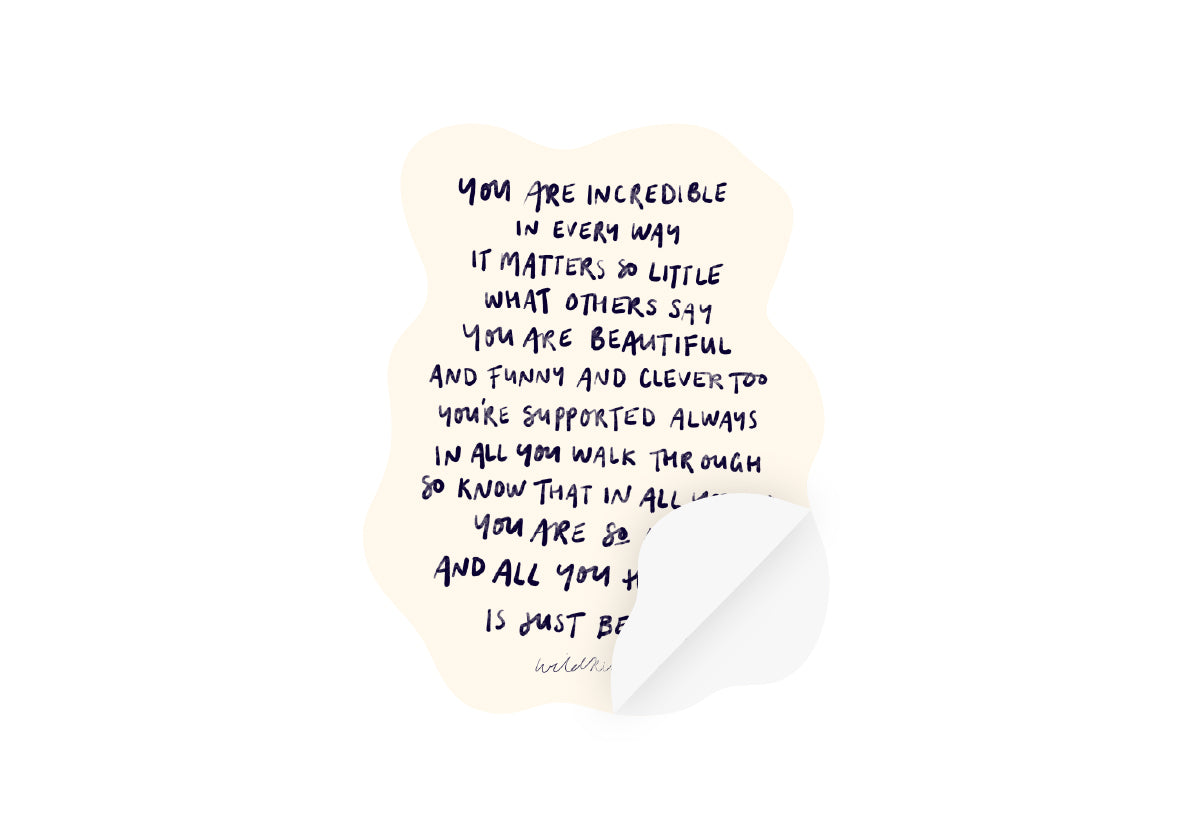 YOU ARE INCREDIBLE
IN EVERY WAY
IT MATTERS SO LITTLE
WHAT OTHERS SAY
YOU ARE BEAUTIFUL
AND FUNNY AND CLEVER TOO
YOU'RE SUPPORTED ALWAYS
IN ALL YOU WALK THROUGH
SO KNOW THAT IN ALL
YOU ARE SO
AND ALL YOU
IS JUST